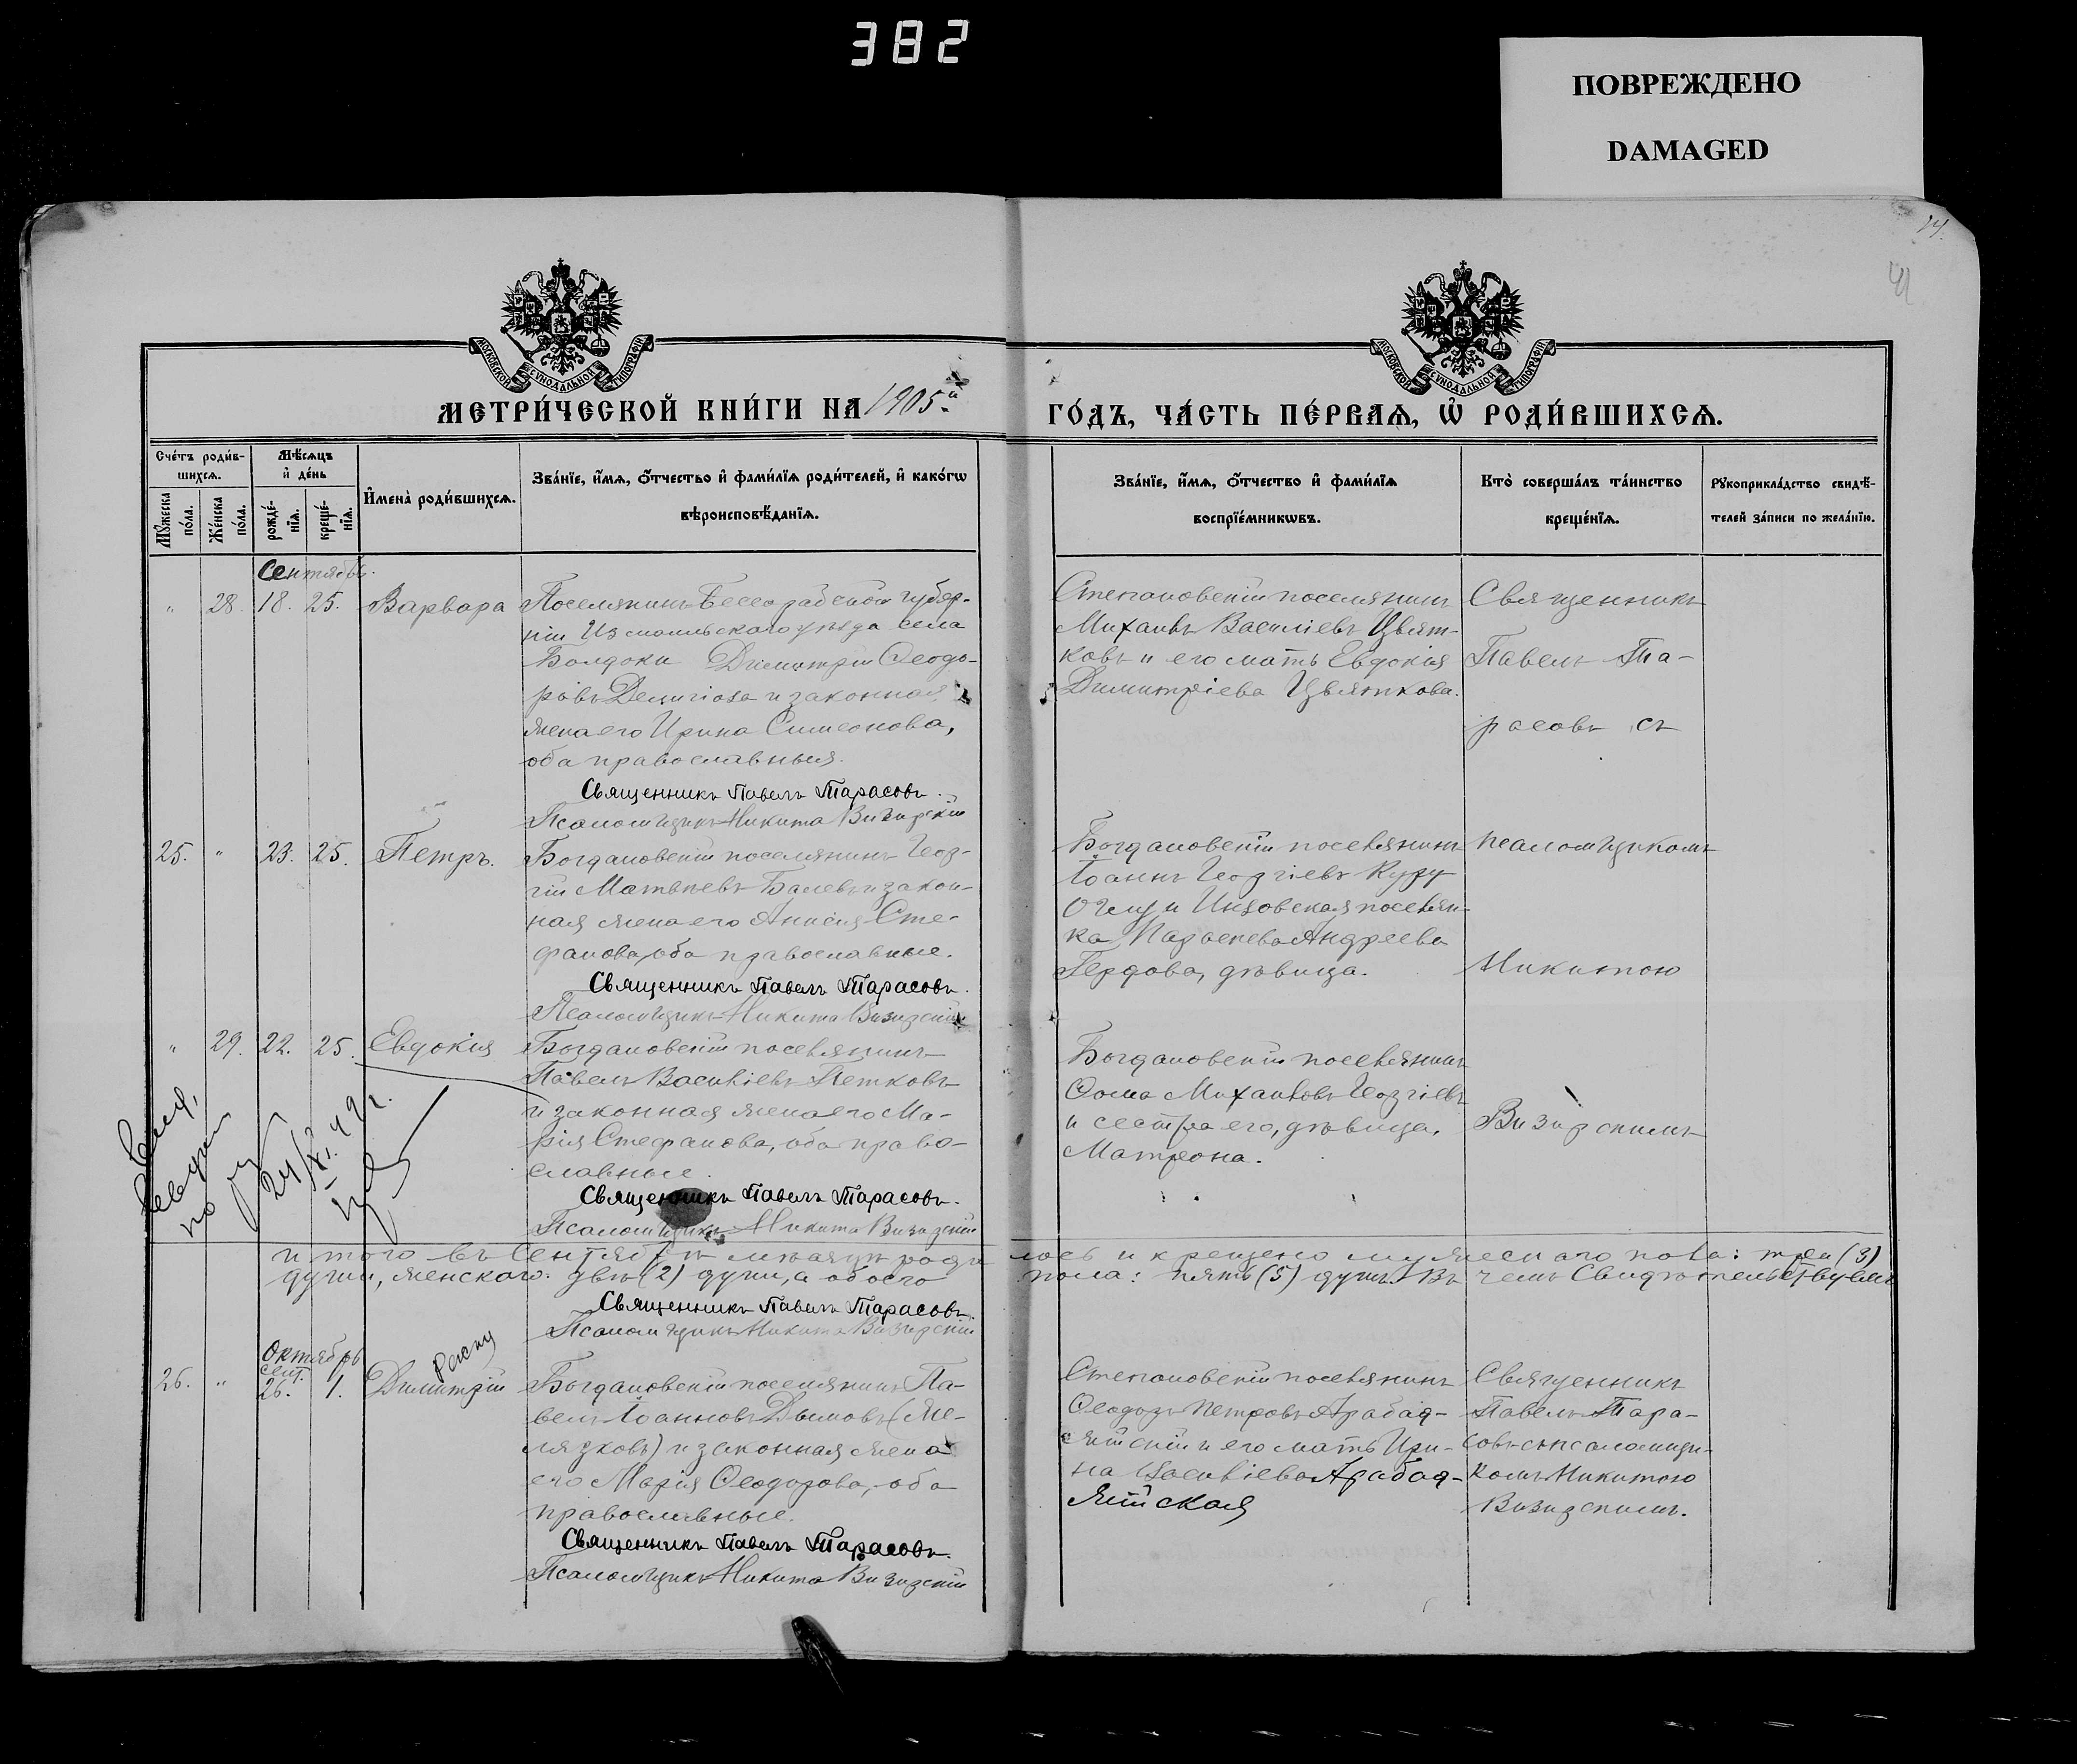 382
ПОВРЕЖДЕНО
DAMAGED
14.
МОСКОВСКОЙ СУНОДАЛЬНОЙ ТИПОГРАФІИ
МОСКОВСКОЙ СУНОДАЛЬНОЙ ТИПОГРАФІИ
МЕТРИ́ЧЕСКОЙ КНИ́ГИ НА 1905й
ГО́ДЪ, ЧА́СТЬ ПЕ́РВАѦ, Ѡ҆ РОДИ́ВШИХСѦ.
Сче́тъ роди́в-
шихсѧ.
Мѣ́сѧцъ
и҆ де́нь
Мꙋ́жеска
по́ла.
Же́нска
по́ла.
рожде́-
нїѧ.
креще́-
нїѧ.
И҆мена̀ роди́вшихсѧ.
Зва́нїе, и҆́мѧ, ѻ҆́тчество и҆ фами́лїѧ роди́телей, и҆ како́гѡ
вѣроисповѣ́данїѧ.
Зва́нїе, и҆́мѧ, ѻ҆́тчество и҆ фами́лїѧ
воспрїе́мникѡвъ.
Кто̀ соверша́лъ та́инство
креще́нїѧ.
Рꙋкоприкла́дство свидѣ́-
телей за́писи по жела́нїю.
Сентябрь.
" 28. 18. 25. Варвара
Поселянинъ Бессарабской губер-
ніи Измаильскаго уѣзда села
Болдоки Димитрій Ѳеодо-
ровъ и законная
жена его Ирина Симеонова,
оба православныя.
Священникъ Павелъ Тарасовъ.
Псаломщикъ Никита Визирскій
Степановскій поселянинъ
Михаилъ Василіевъ Цвят-
ковъ и его мать Евдокія
Димитріева Цвяткова.
Священникъ
Павелъ Та-
расовъ съ
25. " 23. 25. Петръ.
Богдановскій поселянинъ Геор-
гій Матвѣевъ Балевъ и закон-
ная жена его Анисія Сте-
фанова, оба православные.
Священникъ Павелъ Тарасовъ.
Псаломщикъ Никита Визирскій
Богдановскій поселянинъ
Іоаннъ Георгіевъ Куру
Оглу и Инзовская поселян-
ка Параскева Андреева
Гердова, дѣвица.
псаломщикомъ
Никитою
" 29. 22. 25. Евдокія
Богдановскій поселянинъ
Павелъ Василіевъ Петковъ
и законная жена его Ма-
рія Стефанова, оба право-
славные.
Священникъ Павелъ Тарасовъ.
Псаломщикъ Никита Визирскій
Богдановскій поселянинъ
Ѳома Михаиловъ Георгіевъ
и сестра его, дѣвица,
Матрона.
Визирскимъ
Итого въ Сентябрѣ мѣсяцѣ роди лось и крещено мужескаго пола: три (3)
души, женскаго: двѣ (2) души, а обоего пола: пять (5) душъ. Въ чемъ Свидѣтельствуемъ
Священникъ Павелъ Тарасовъ.
Псаломщикъ Никита Визирскій
Октябрь
Сент.
26. " 26. 1. Димитрій
Богдановскій поселянинъ Па-
велъ Іоанновъ Дымовъ (Же-
лязковъ) и законная жена
его Марія Ѳеодорова, оба
православные.
Священникъ Павелъ Тарасовъ.
Псаломщикъ Никита Визирскій
Степановскій поселянинъ
Ѳеодоръ Петровъ Арабад-
жійскій и его мать Ири-
на Василіева Арабад-
жійская
Священникъ
Павелъ Тара-
совъ съ псаломщи-
комъ Никитою
Визирскимъ.